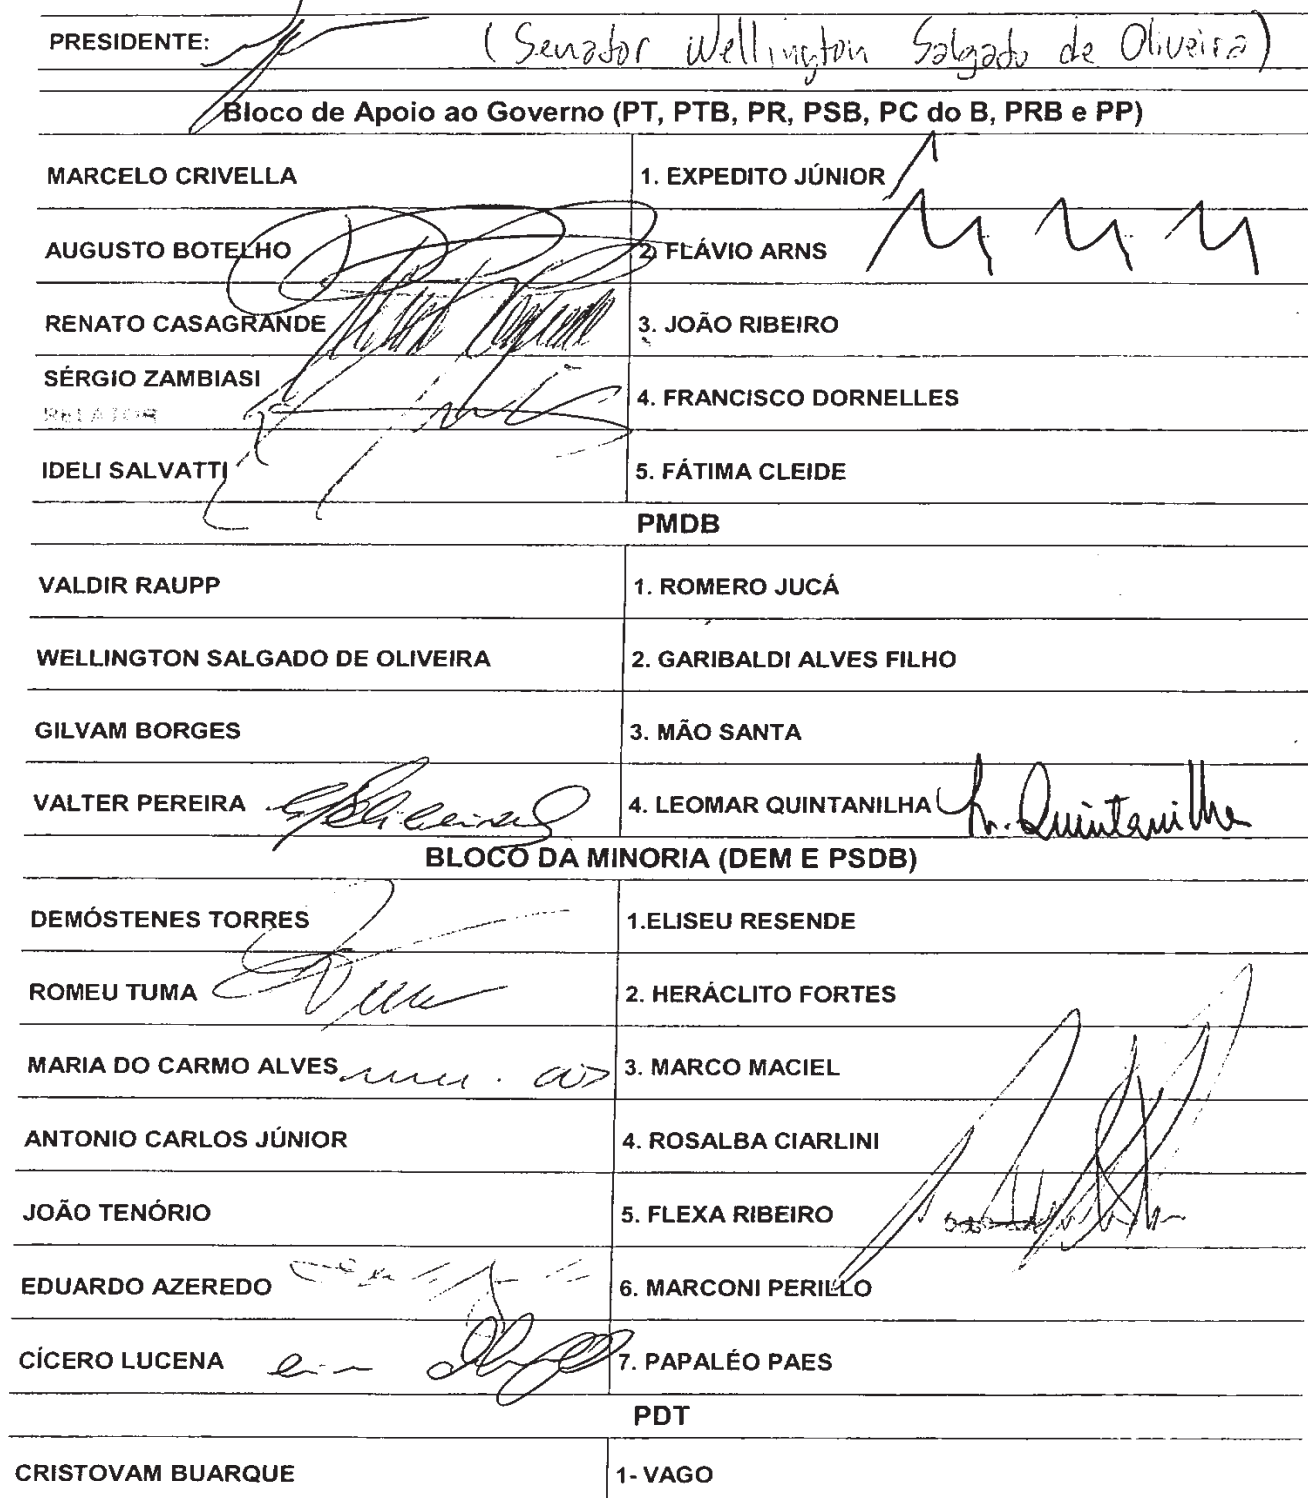 PRESIDENTE: (Senador Wellington Salgado de Oliveira)
Bloco de Apoio ao Governo (PT, PTB, PR, PSB, PC do B, PRB e PP)
MARCELO CRIVELLA 1. EXPEDITO JÚNIOR
AUGUSTO BOTELHO 2. FLÁVIO ARNS
RENATO CASAGRANDE 3. JOÃO RIBEIRO
SÉRGIO ZAMBIASI 4. FRANCISCO DORNELLES
RELATOR
IDELI SALVATTI 5. FÁTIMA CLEIDE
PMDB
VALDIR RAUPP 1. ROMERO JUCÁ
WELLINGTON SALGADO DE OLIVEIRA 2. GARIBALDI ALVES FILHO
GILVAM BORGES 3. MÃO SANTA
VALTER PEREIRA 4. LEOMAR QUINTANILHA L. Quintanilha
BLOCO DA MINORIA (DEM E PSDB)
DEMÓSTENES TORRES 1.ELISEU RESENDE
ROMEU TUMA 2. HERÁCLITO FORTES
MARIA DO CARMO ALVES 3. MARCO MACIEL
ANTONIO CARLOS JÚNIOR 4. ROSALBA CIARLINI
JOÃO TENÓRIO 5. FLEXA RIBEIRO
EDUARDO AZEREDO 6. MARCONI PERILLO
CÍCERO LUCENA 7. PAPALÉO PAES
PDT
CRISTOVAM BUARQUE 1- VAGO